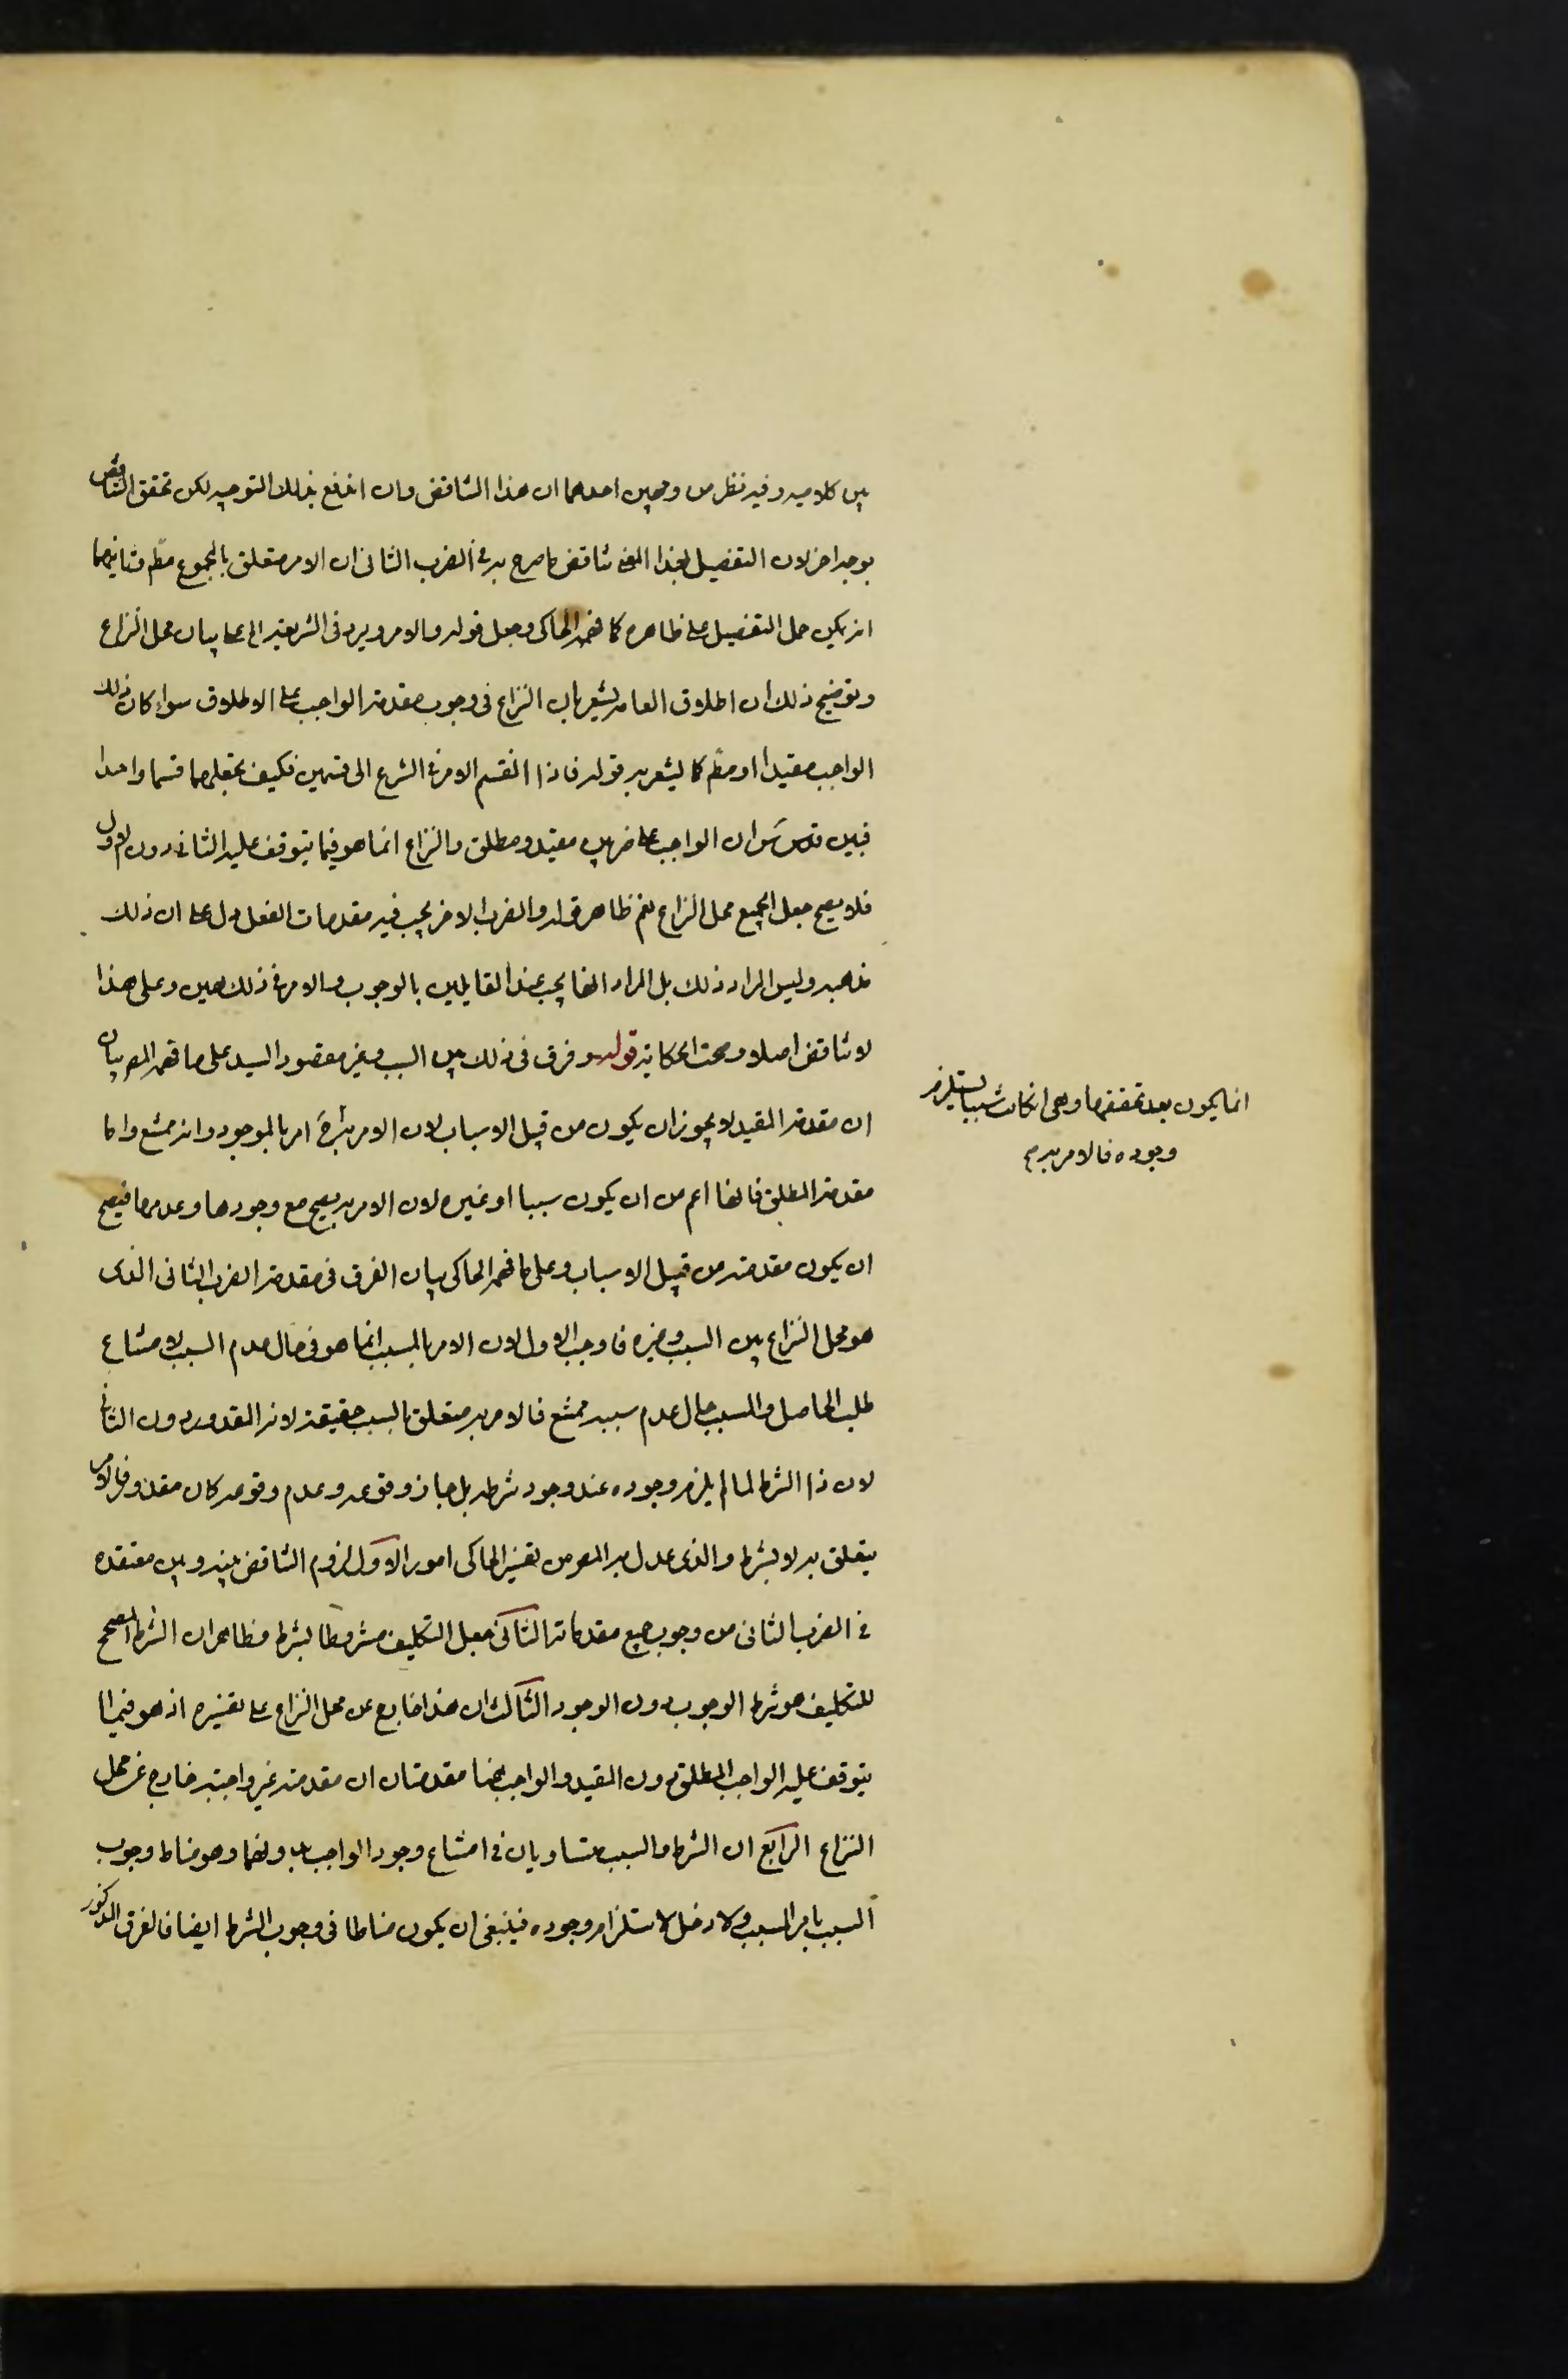 بين كلاميه وفيه نظر من وجهين احدهما ان هذا التناقض وان اندفع بذلك التوجيه لكن تحقق التناقض
بوجه اخر لان التفصيل بهذا المعنى تناقض ما صرح به في الضرب الثاني ان الامر متعلق بالمجموع مطم وثانيهما
انه يمكن حمل التفصيل على ظاهره كما فهمه الحاكي وجعل قوله والامر ويرد في الشريعة الى بيان محل النزاع
وتوضيح ذلك ان اطلاق العامه يشعر بان النزاع في وجوب مقدمة الواجب على الاطلاق سواء كان ذلك
الواجب مقيدا او مطم كما يشعر به قوله فاذا انقسم الامر في الشرع الى قسمين فكيف نجعلهما قسما واحدا
فبين قدس سره ان الواجب على ضربين مقيد ومطلق والنزاع انما هو فيما يتوقف عليه الثاني دون الاول
فلا يصح جعل الجميع محل النزاع نعم ظاهر قوله والضرب الاخر يجب فيه مقدمات الفعل دل على ان ذلك
مذهبه وليس المراد ذلك بل المراد انها يجب عند القايلين بالوجوب والامر في ذلك هين وعلى هذا
لا تناقض اصلا وصحت الحكاية قوله وفرق في ذلك بين السبب وغيره مقصود السيد على ما فهمه المص بيان
ان مقدمة المقيد لا يجوز ان يكون من قبيل الاسباب لان الامر به امر بالموجود وانه ممتنع واما
مقدمة المطلق فانها اعم من ان يكون سببا او غيره لان الامر به يصح مع وجودها وعدمها فيصح
ان يكون مقدمته من قبيل الاسباب وعلى ما فهمه الحاكي بيان الفرق في مقدمة الضرب الثاني الذي
هو محل النزاع بين السبب وغيره فاوجب الاول لان الامر بالمسبب انما هو في حال عدم السبب لامتناع
طلب الحاصل والمسبب حال عدم سببه ممتنع فالامر به متعلق بالسبب حقيقة لانه المقدور دون الثاني
لان ذا الشرط لما لم يلزم وجوده عند وجود شرطه بل جاز وقوعه وعدم وقوعه كان مقدورا فالامر
يتعلق به لا بشرطه والذي عدل به المص من تفسير الحاكي امور الاول لزوم التناقض بينه وبين معتقده
في الضرب الثاني من وجوب جميع مقدماته الثاني جعل التكليف مشروطا بشرط وظاهر ان الشرط المصحح
للتكليف هو شرط الوجوب دون الوجود الثالث ان هذا خارج عن محل النزاع على تفسيره اذ هو فيما
يتوقف عليه الواجب المطلق دون المقيد والواجب هنا مقدمتان ان مقدمته غير واجبة خارج عن محل
النزاع الرابع ان الشرط والسبب متساويان في امتناع وجود الواجب بدونهما وهو مناط وجوب
السبب بامر المسبب ولا دخل لاستلزام وجوده فينبغي ان يكون مناطا في وجوب الشرط ايضا فالفرق المذكور
انما يكون بعد تحققها وهي ان كانت سببا يستلزم
وجوده فالامر به